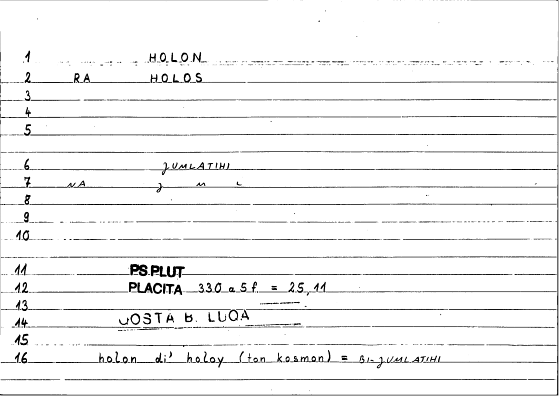 1 HOLON
2 RA HOLOS
3
4
5
6 ǧUMLATIHI
7 NA ǧ M L
8
9
10
11 PS.PLUT
12 PLACITA 330 a 5 f. = 25,11
13
14 COSTA B. LUQA
15
16 holon di' holoy (ton kosmon) = BI-ǧUMLATIHI